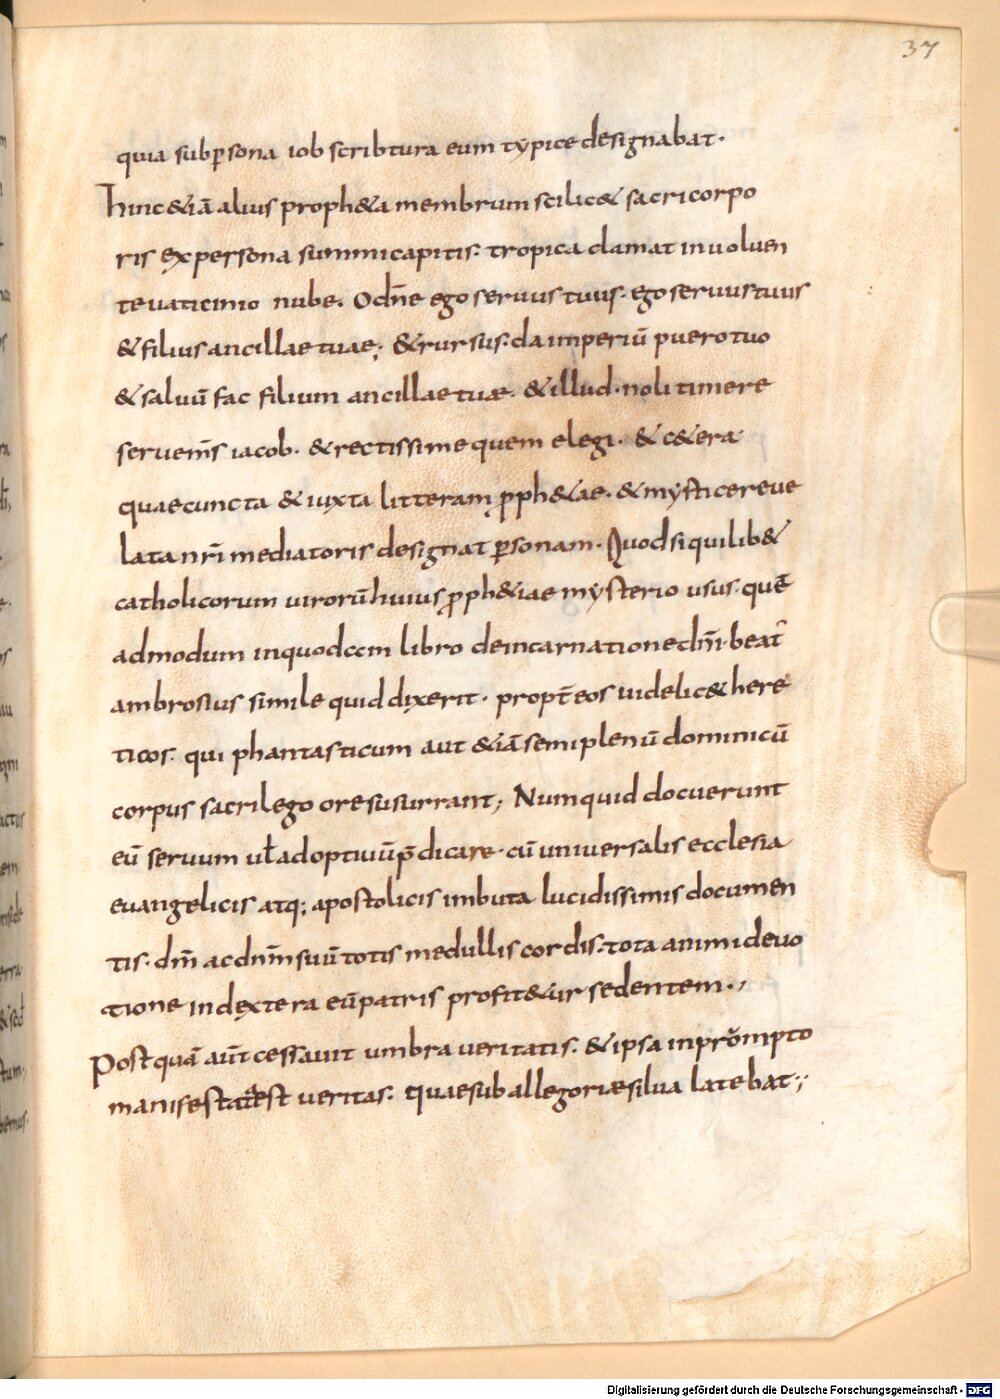 37
quia subꝑsona iob scribtura eum typice designabat·
hinc &iā alius proph&a membrum scilic& sacri corpo
ris ex persona summi capitis· tropica clamat inuoluen
te uaticinio nube. O dn̄e ego seruus tuus· ego seruus tuus
& filius ancillae tuae; & rursus· da imperiū puero tuo
& saluū fac filium ancillae tuæ· & illud· noli timere
serue m̄s iacob· & rectissime quem elegi· & c&era·
quae cuncta & iuxta litteram ꝓph&ae· & mystice reue
lata nr̄i mediatoris designat ꝑsonam· Quod si quilib&
catholicorum uirorū huius ꝓph&iae mysterio usus· quē
admodum in quodam libro de incarnatione dn̄i· beat᾿
ambrosius simile quid dixerit· propt̄ eos uidelic& here
ticos· qui phantasticum aut &iā semiplenū dominicū
corpus sacrilego ore susurrant; Numquid docuerunt
eū seruum uł adoptiuū p̄dicare· cū uniuersalis ecclesia
euangelicis atq; apostolicis imbuta lucidissimis documen
tis· dm̄ ac dnm̄ suū totis medullis cordis· tota animi deuo
tione in dextera eū patris profit&ur sedentem·,
Postquā aūt cessauit umbra ueritatis· & ipsa in prōmpto
manifestata est ueritas· quae sub allegoriæ silua latebat;
Digitalisierung gefördert durch die Deutsche Forschungsgemeinschaft - DFG